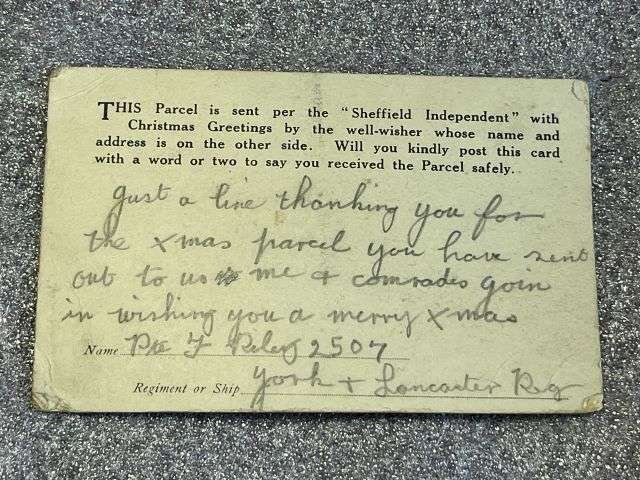 THIS Parcel is sent per the "Sheffield Independent" with
Christmas Greetings by the well-wisher whose name and
address is on the other side. Will you kindly post this card
with a word or two to say you received the Parcel safely.
Just a line thanking you for
the Xmas parcel you have sent
out to us me & comrades goin
in wishing you a merry Xmas
Name Pte F Riley 2507
Regiment or Ship York & Lancaster Reg